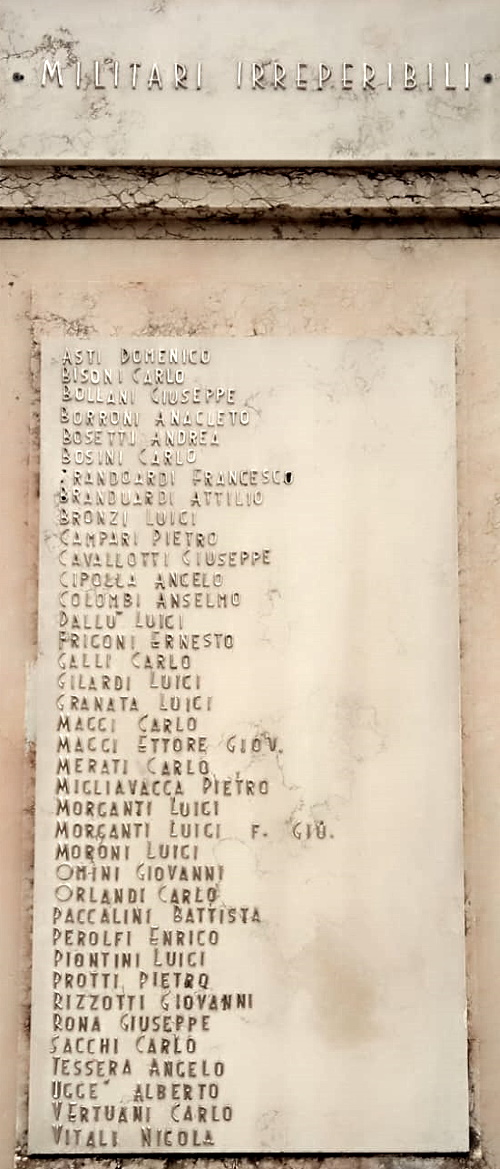 • MILITARI IRREPERIBILI •
ASTI DOMENICO
BISONI CARLO
BOLLANI GIUSEPPE
BORRONI ANACLETO
BOSETTI ANDREA
BOSINI CARLO
FRANCESCO
BRANDUARDI ATTILIO
BRONZI LUIGI
CAMPARI PIETRO
CAVALLOTTI GIUSEPPE
CIPOLLA ANGELO
COLOMBI ANSELMO
DALLU' LUIGI
FRIGONI ERNESTO
GALLI CARLO
GILARDI LUIGI
GRANATA LUIGI
MAGGI CARLO
MAGGI ETTORE GIOV.
MERATI CARLO
MIGLIAVACCA PIETRO
MORGANTI LUIGI
MORGANTI LUIGI F. GIU.
MORONI LUIGI
OMINI GIOVANNI
ORLANDI CARLO
PACCALINI BATTISTA
PEROLFI ENRICO
PIONTINI LUIGI
PROTTI PIETRO
RIZZOTTI GIOVANNI
RONA GIUSEPPE
SACCHI CARLO
TESSERA ANGELO
UGGE' ALBERTO
VERTUANI CARLO
VITALI NICOLA